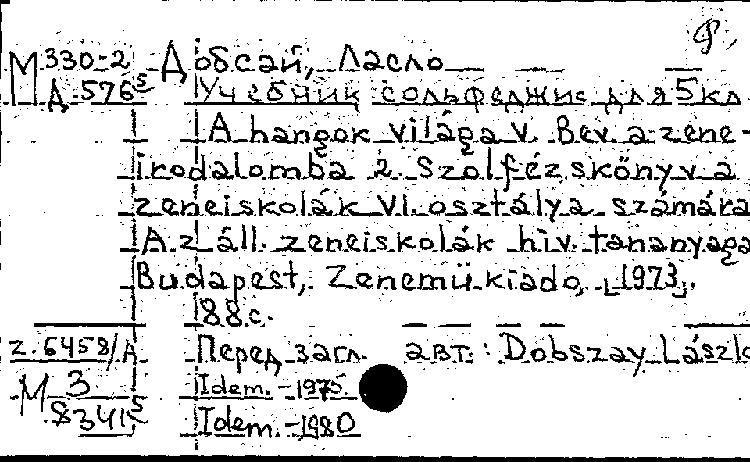 Ф,
М 330-2 Добсай, Ласло
Д-576⁵ Учебник сольфеджио для 5 кл
A hangok világa V. Bev. a zene-
irodalomba 2. Szolfézskönyv a
zeneiskolák VI. osztálya számára
Az áll. zeneiskolák hiv. tananyaga
Budapest, Zenemükiado, [1973].
88 с.
z.6458/A Перед загл. авт.: Dobszay László
М 3 Idem. -1975.
8341⁵ Idem. -1980